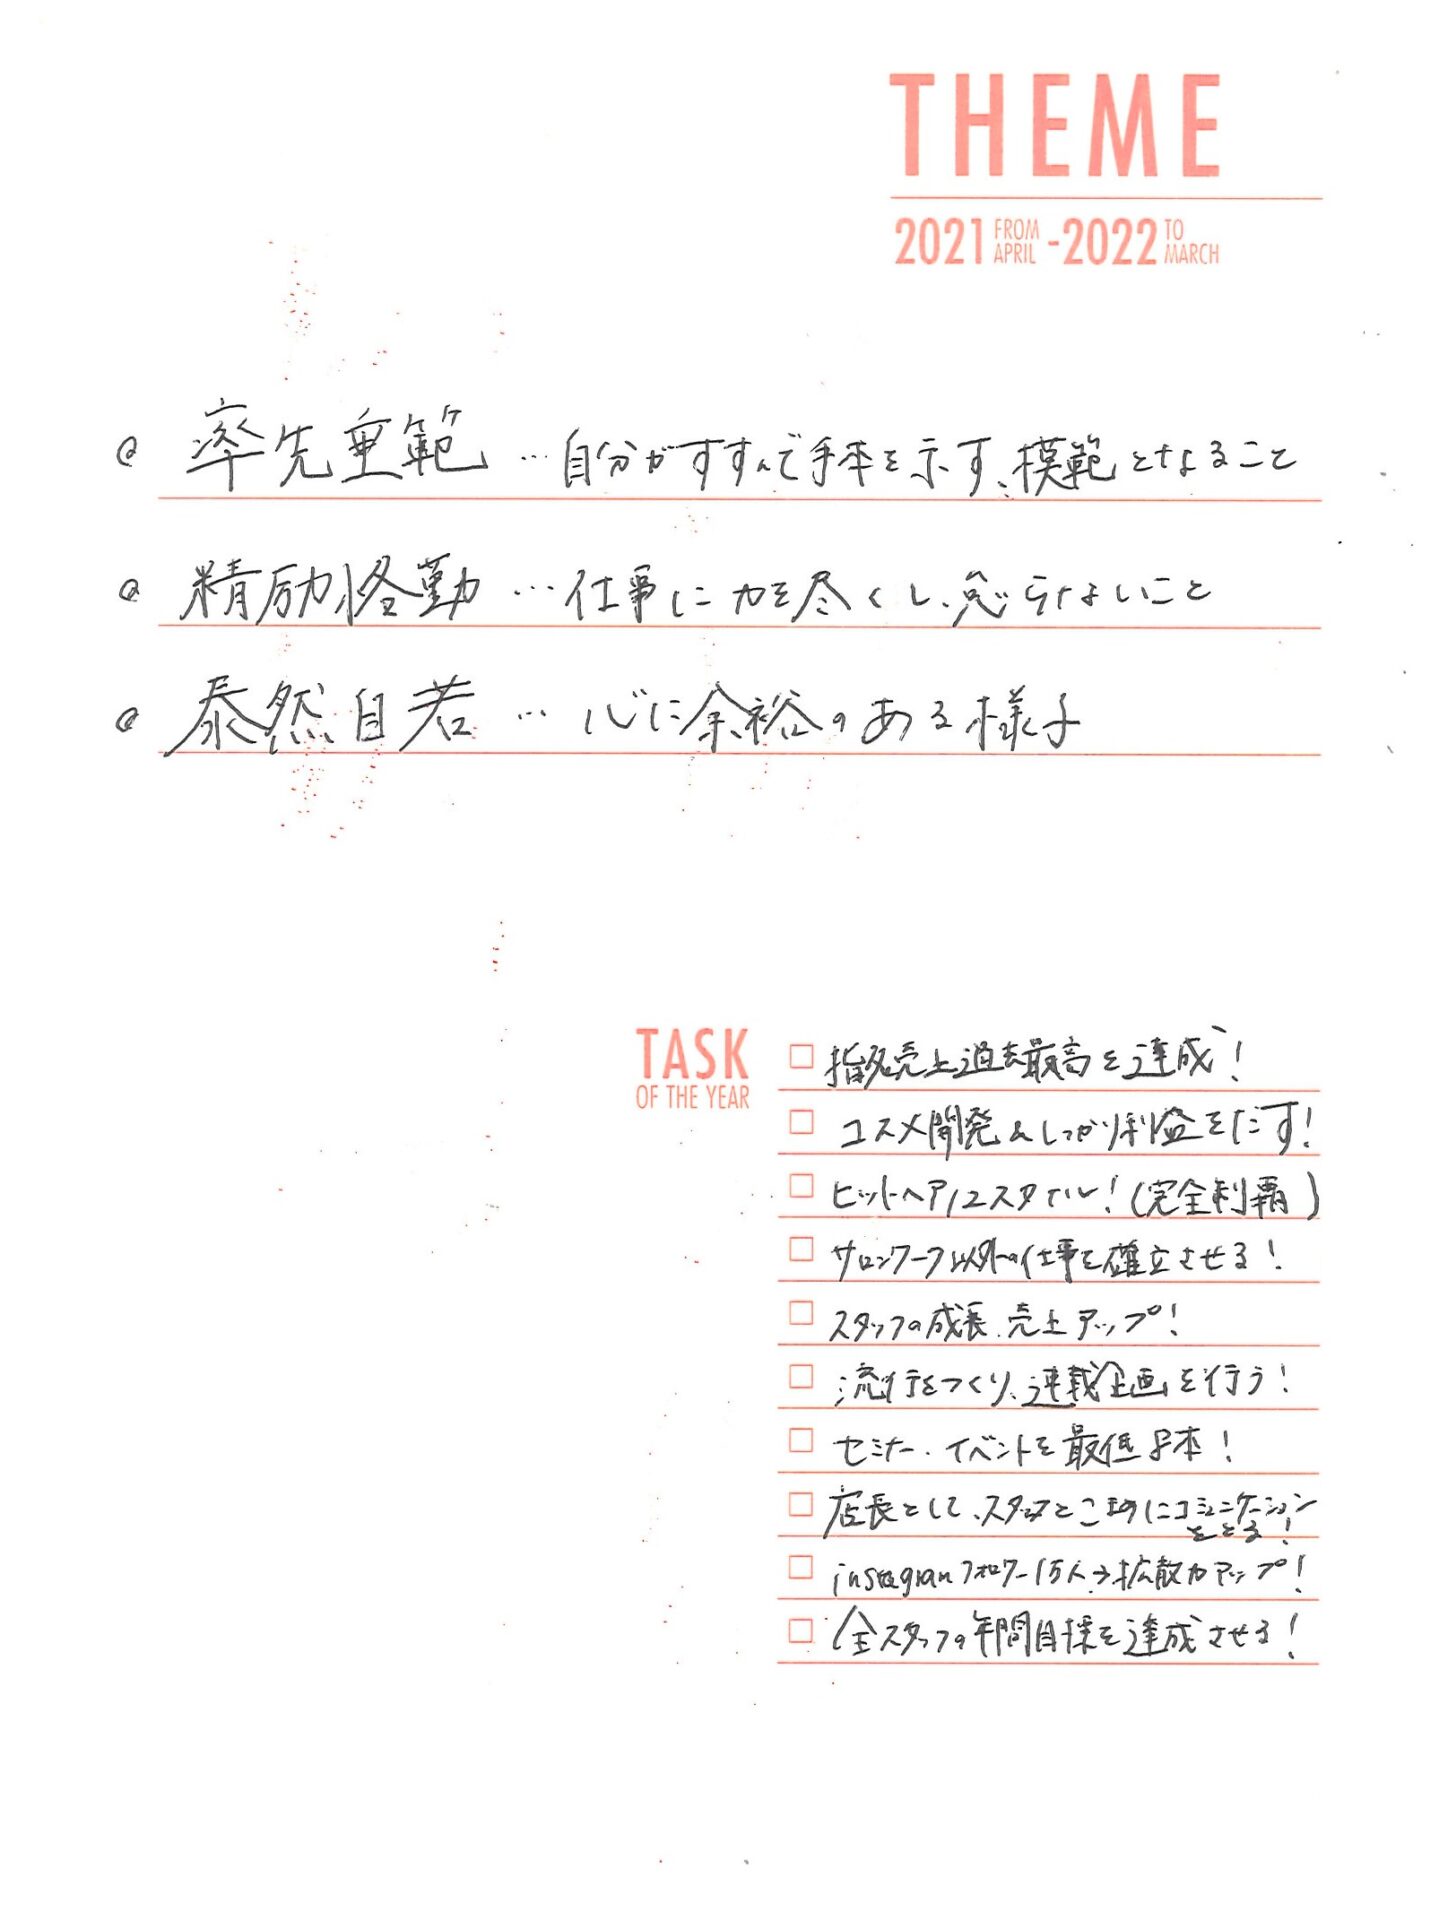 THEME
2021 FROM APRIL -2022 TO MARCH
率先垂範 … 自分がすすんで手本を示す、模範となること
精励恪勤 … 仕事に力を尽くし、怠らないこと
泰然自若 … 心に余裕のある様子
TASK
OF THE YEAR
指名売上過去最高を達成!
コスメ開発&しっかり利益をだす!
ヒットヘア12スタイル!(完全制覇)
サロンワーク以外の仕事を確立させる!
スタッフの成長、売上アップ!
流行をつくり、連載企画を行う!
セミナー・イベントを最低8本!
店長として、スタッフとこまめにコミュニケーション
をとる!
instagramフォロワー1万人→拡散力アップ!
全スタッフの年間目標を達成させる!